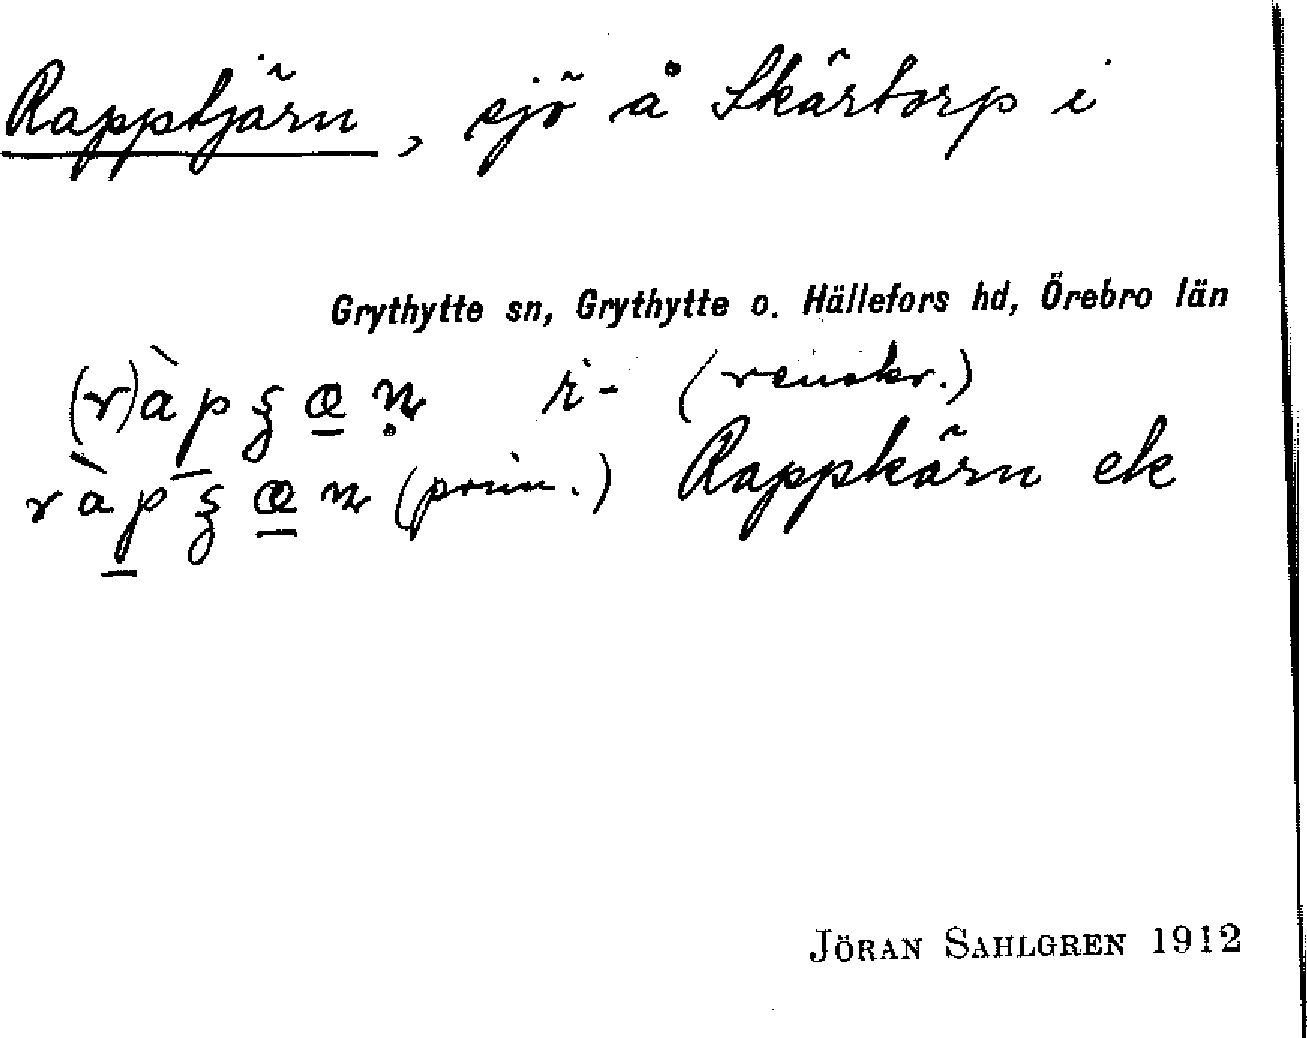 Rapptjärn, sjö å Skärtorp i
Grythytte sn, Grythytte o. Hällefors hd, Örebro län
(r)àp̲ʂæ̲ṇ r- (renskr.)
ràp̲ʂæ̲n (prim.) Rappkärn ek
JÖRAN SAHLGREN 1912